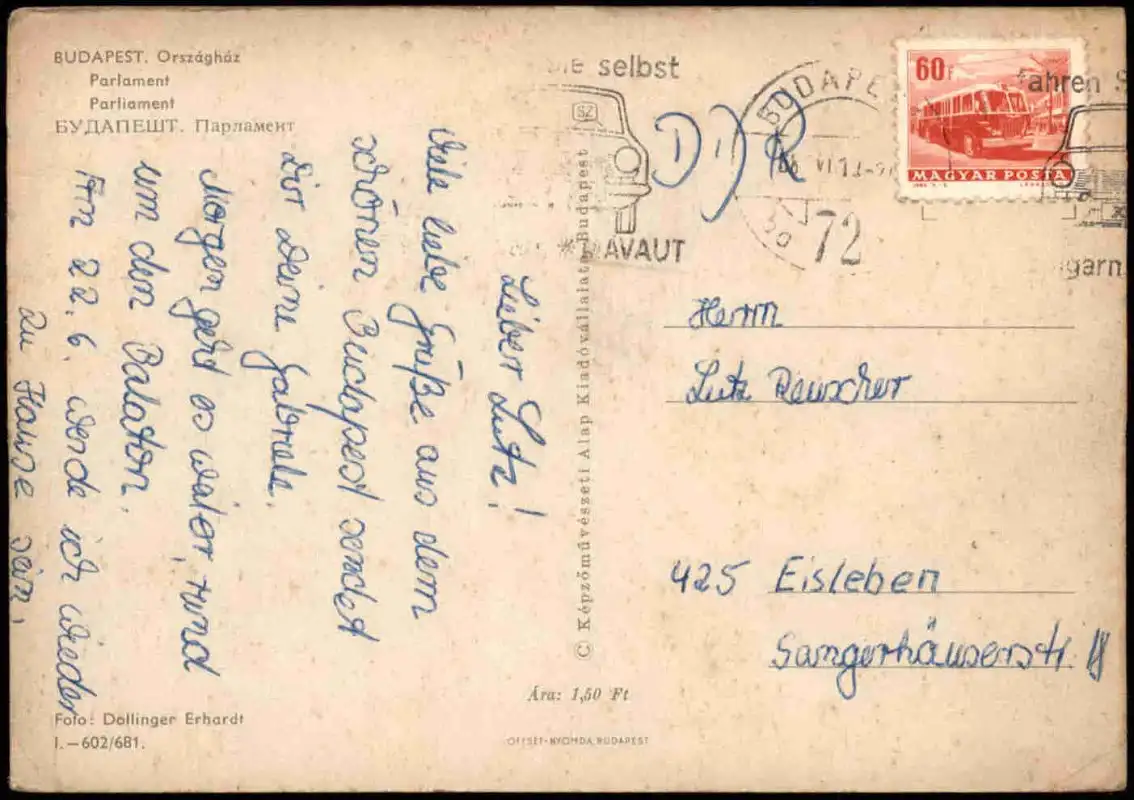 BUDAPEST. Országház
Parlament
Parliament
БУДАПЕШТ. Парламент
Lieber Lutz!
Viele liebe Grüße aus dem
schönen Budapest sendet
Dir Deine Gabriela.
Morgen geht es weiter, rund
um den Balaton.
Am 22. 6. werde ich wieder
zu Hause sein.
Foto: Dollinger Erhardt
I.—602/681.
© Képzőművészeti Alap Kiadóvállalata, Budapest
Ára: 1,50 Ft
OFFSET-NYOMDA, BUDAPEST
selbst
SZ
MAVAUT
DDR
BUDAPE
VI.
72
60f
MAGYAR POSTA
fahren S
ngarn
Herrn
Lutz Reuscher
425 Eisleben
Sangerhäuserstr.